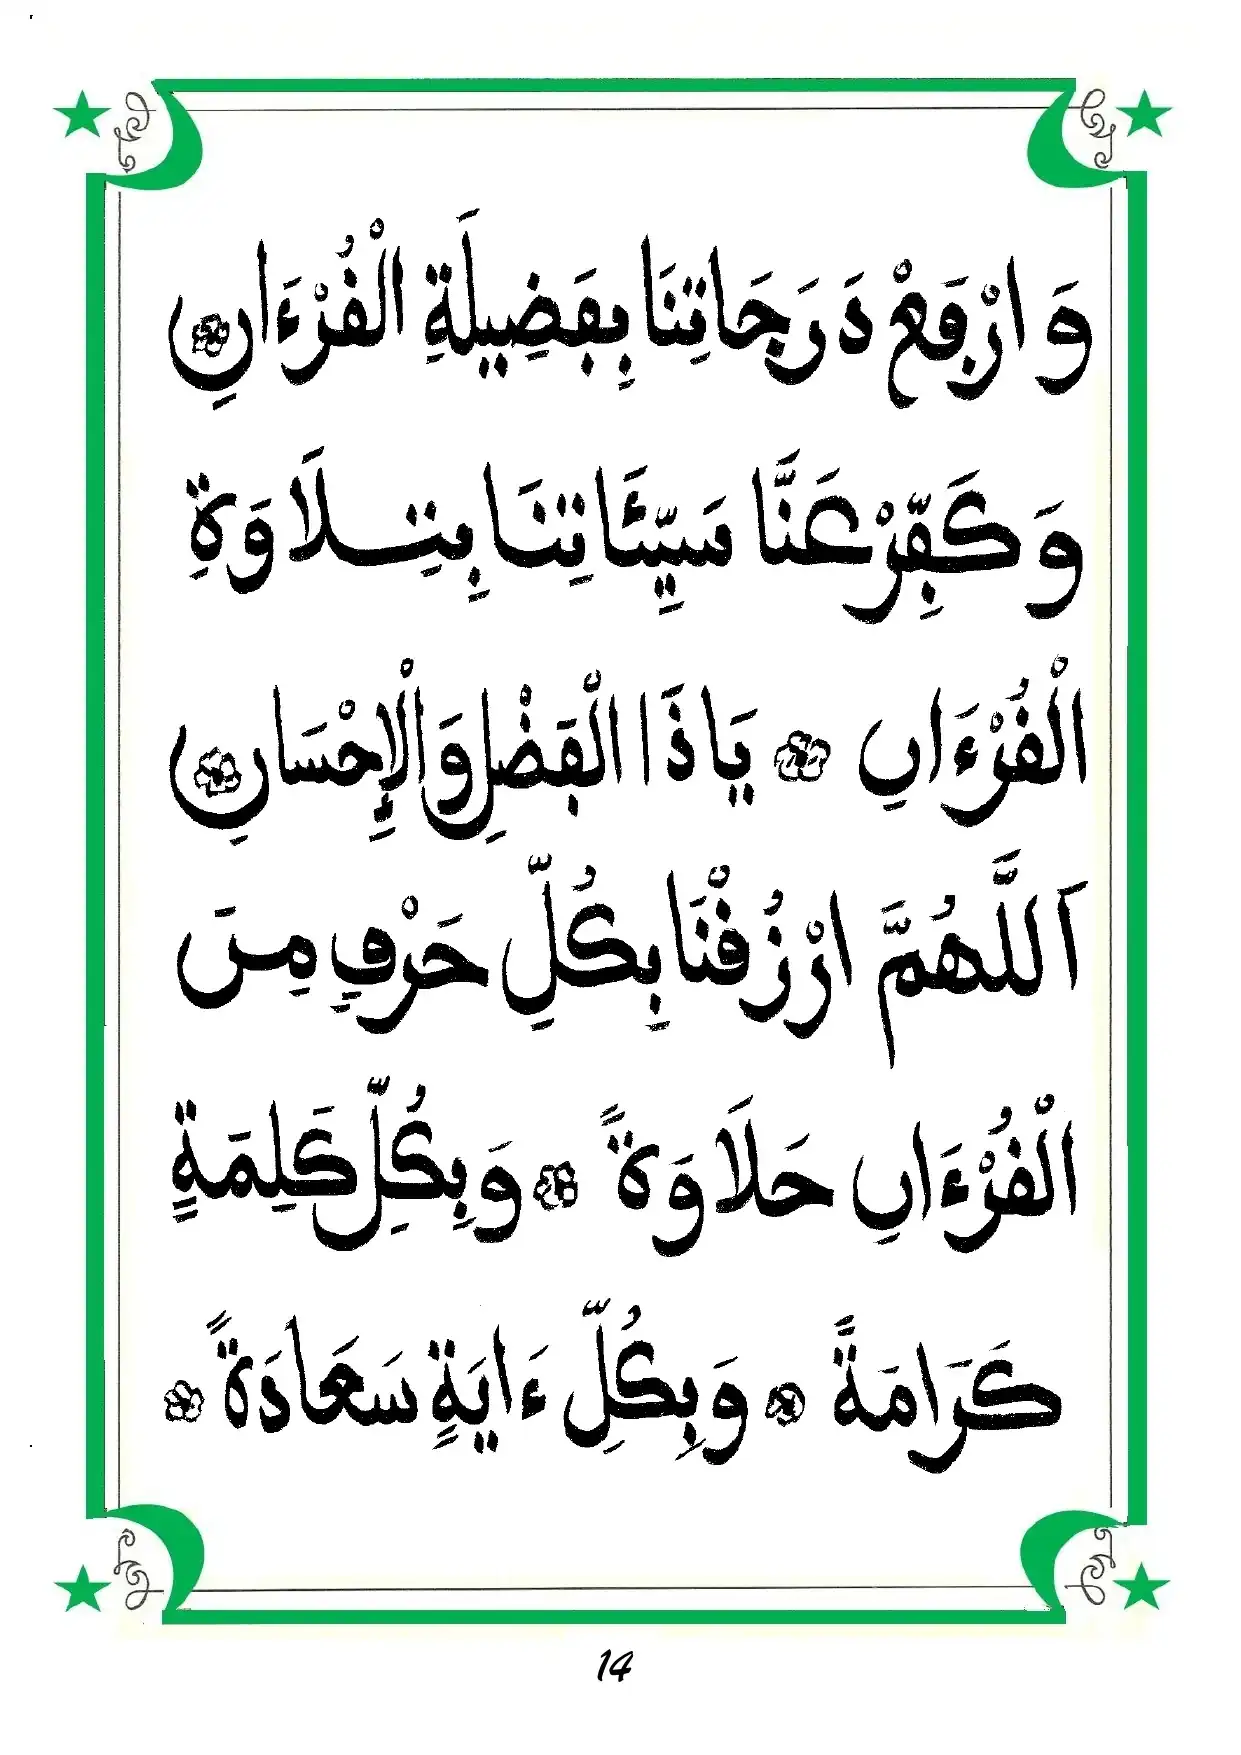 وَارْفَعْ دَرَجَاتِنَا بِفَضِيلَةِ الْقُرْءَانِ
وَكَفِّرْ عَنَّا سَيِّئَاتِنَا بِتِلَاوَةِ
الْقُرْءَانِ يَاذَا الْفَضْلِ وَالْإِحْسَانِ
اَللَّهُمَّ ارْزُقْنَا بِكُلِّ حَرْفٍ مِنَ
الْقُرْءَانِ حَلَاوَةً وَبِكُلِّ كَلِمَةٍ
كَرَامَةً وَبِكُلِّ ءَايَةٍ سَعَادَةً
14